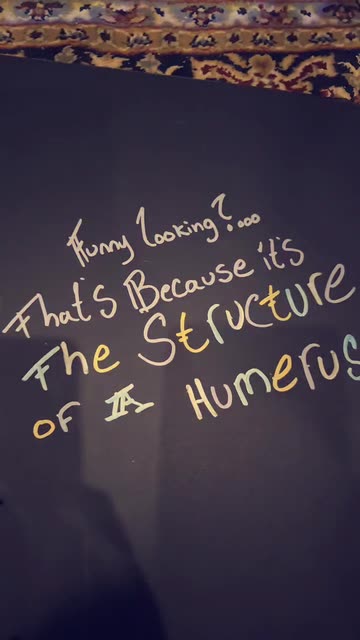 Funny looking?....
That's Because it's
The Structure
of A Humerus